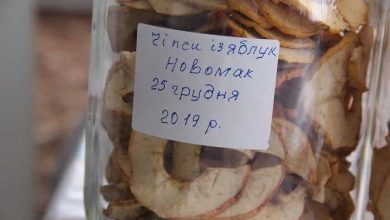 Чіпси із яблук
Новомак
25 грудня
2019 р.